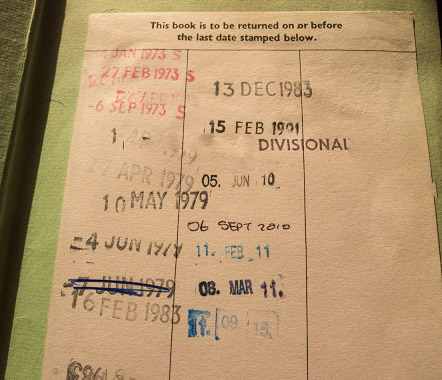 This book is to be returned on or before
the last date stamped below.
JAN 1973 S
27 FEB 1973 S
-6 SEP 1973 S
APR 1979
10 MAY 1979
-4 JUN 1979
-7 JUN 1979
16 FEB 1983
13 DEC 1983
15 FEB 1991
DIVISIONAL
05. JUN 10
06 SEPT 2010
11. FEB 11
08. MAR 11.
11. 09. 15.